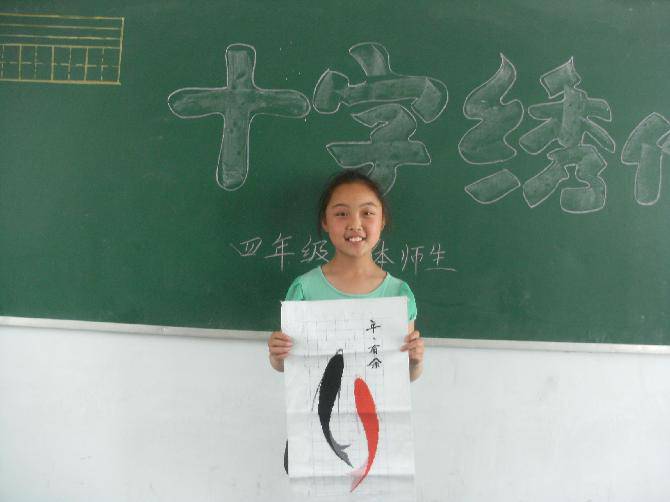 十字绣
四年级 体师生
年々有余